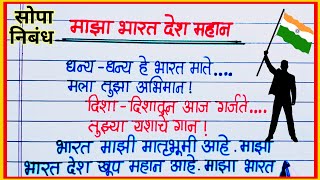 सोपा
निबंध
माझा भारत देश महान
धन्य-धन्य हे भारत माते....
मला तुझा अभिमान !
दिशा-दिशातून आज गर्जते....
तुझ्या यशाचे गान !
भारत माझी मातृभूमी आहे. माझा
भारत देश खूप महान आहे. माझा भारत